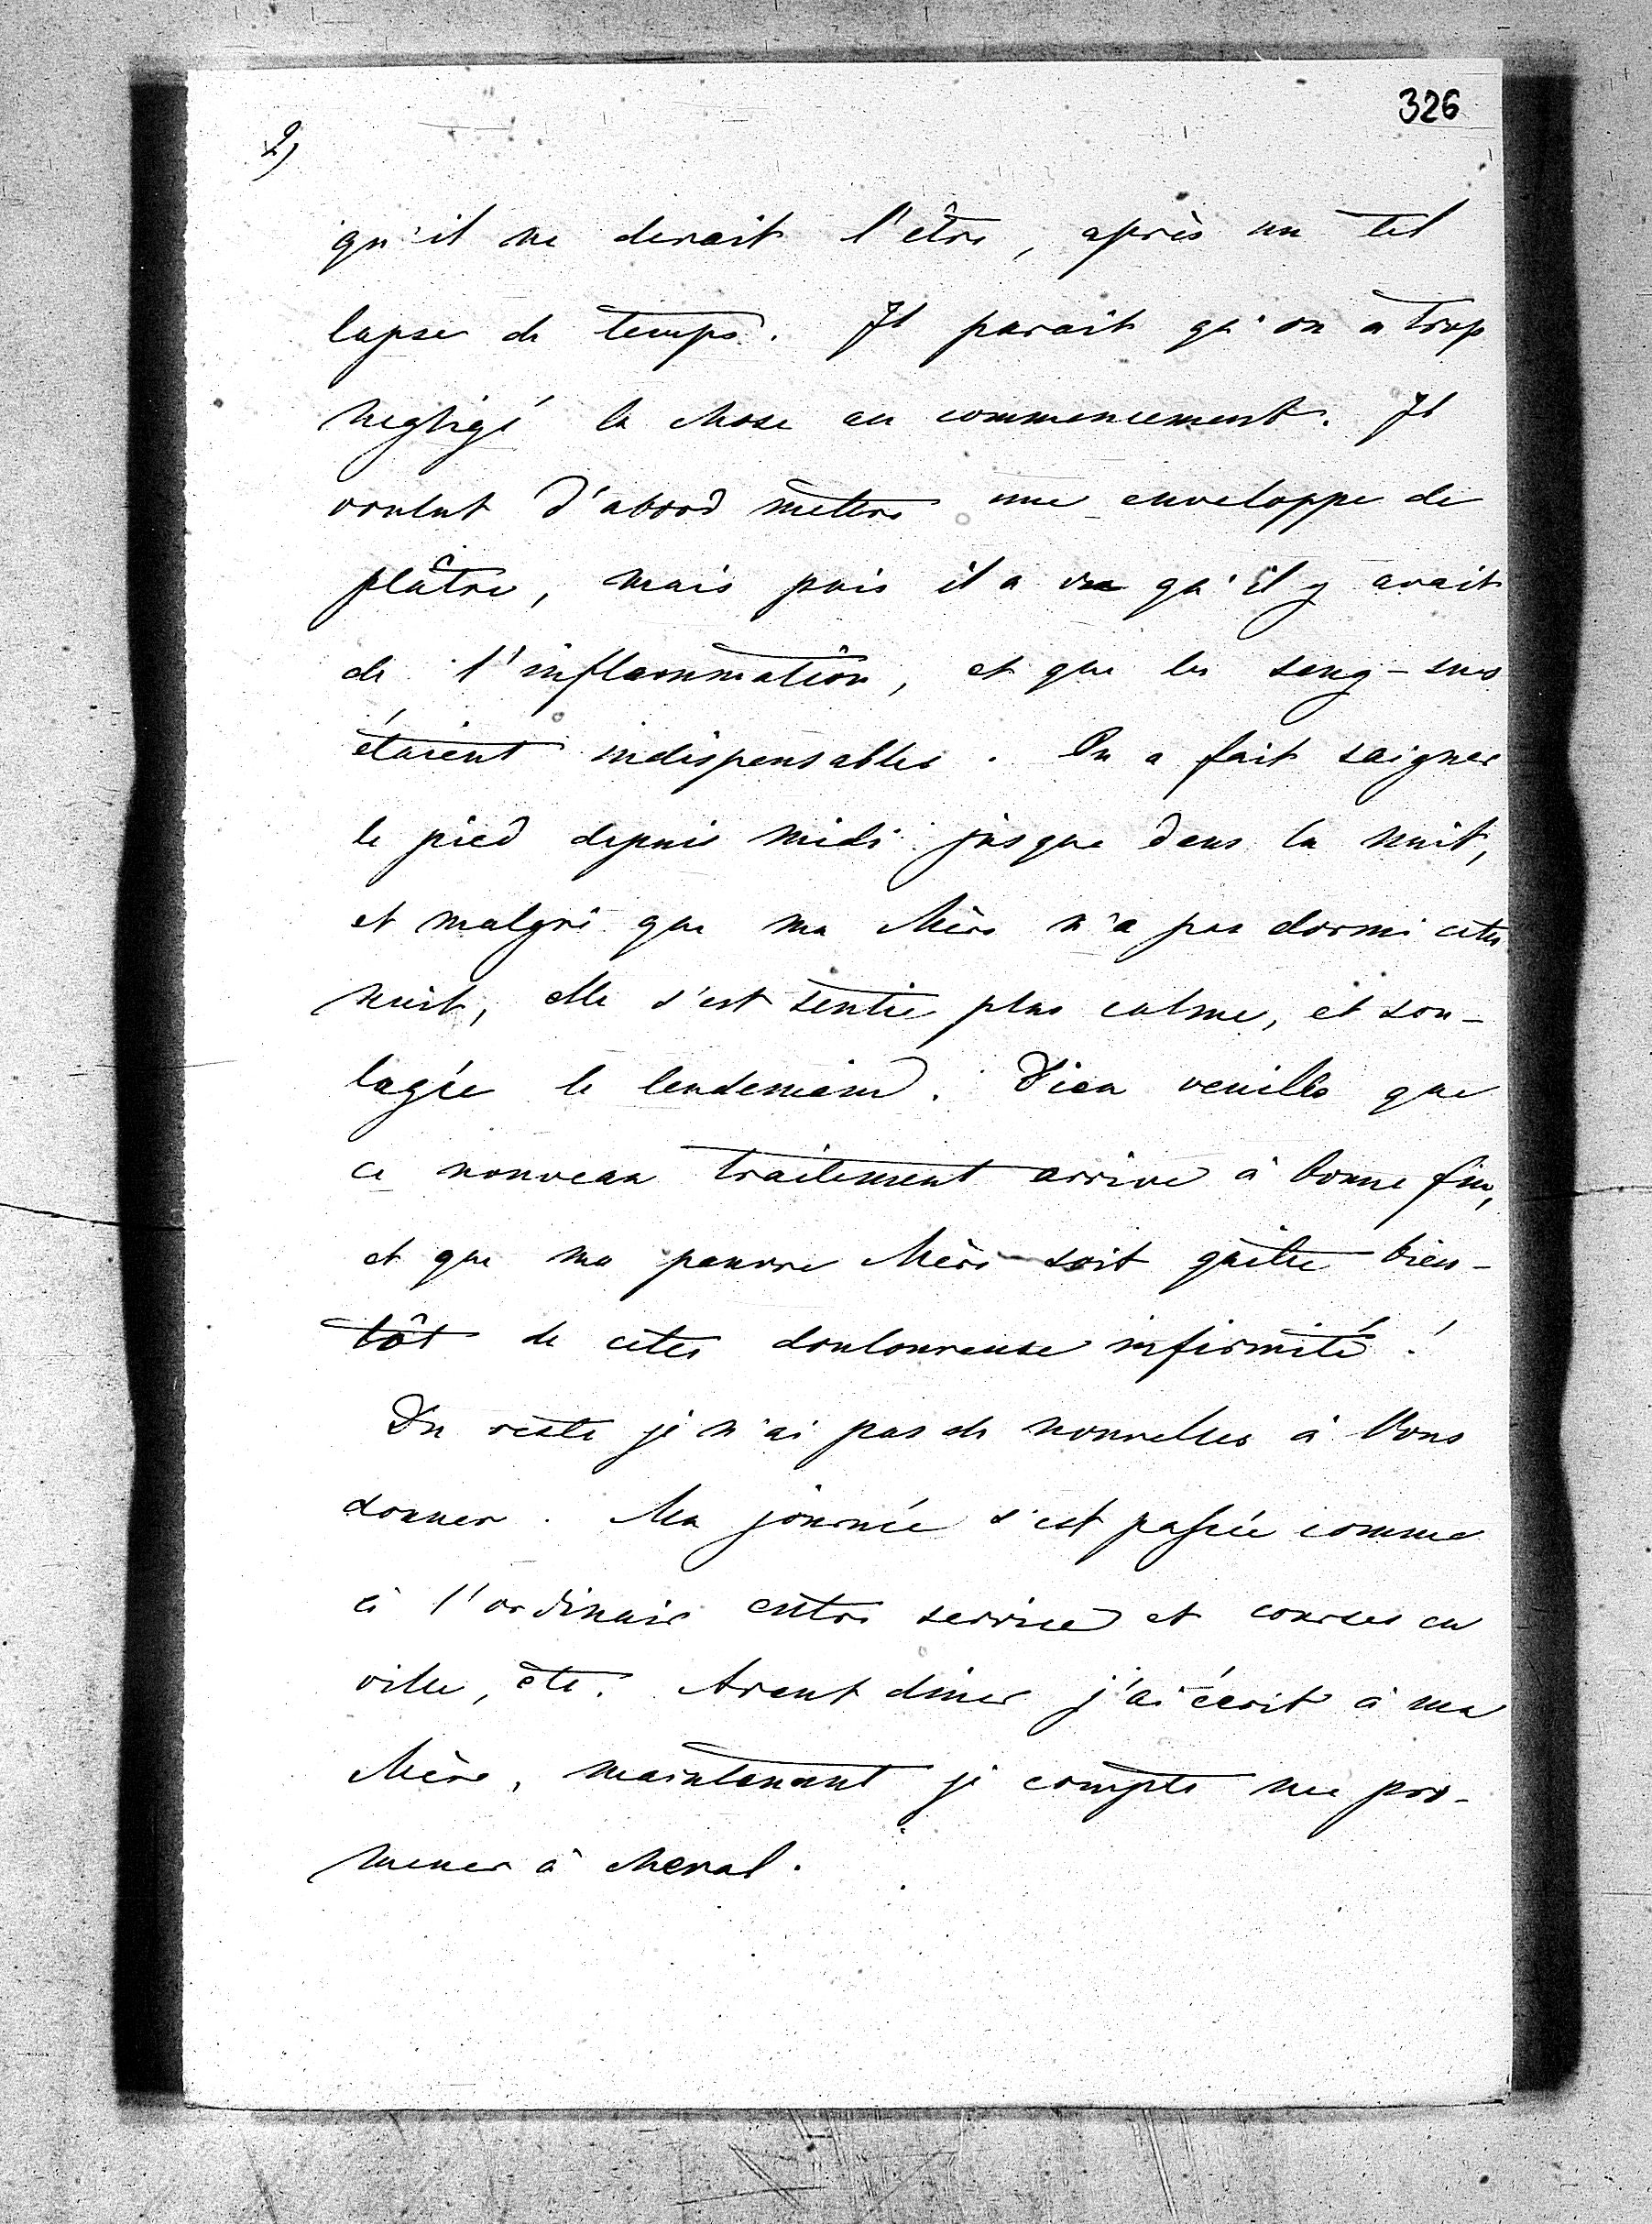 326
2)
qu'il ne devait l'être, après un tel
lapse de temps. Il parait qu'on a trop
negligé la chose au commencement. Il
voulut d'abord mettre une enveloppe de
plâtre, mais puis il a vu qu'il y avait
de l'inflammation, et que les sang-sues
étaient indispensables. On a fait saigner
le pied depuis midi jusque dans la nuit,
et malgré que ma Mère n'a pas dormi cette
nuit, elle s'est sentie plus calme, et sou-
lagée le lendemain. Dieu veuille que
ce nouveau traitement arrive à bonne fin,
et que ma pauvre Mère soit quitte bien-
tôt de cette douloureuse infirmité!
Du reste je n'ai pas de nouvelles à Vous
donner. Ma journée s'est passée comme
à l'ordinaire entre service et courses en
ville, etc. Avant diner j'ai écrit à ma
Mère, maintenant je compte me pro-
mener à cheval.